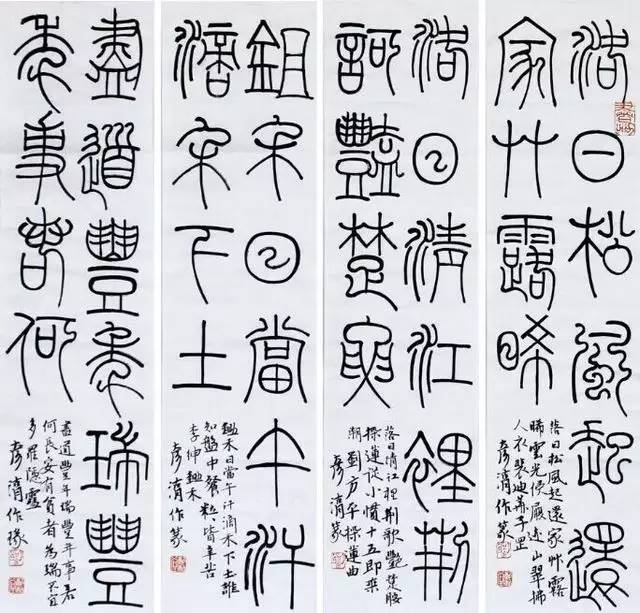 洛日松風起還
家艸露晞
落日松風起還家艸露
晞雲光侵履迹山翠拂
人衣裴迪華子罡
彥作篆
洛日清江裡荊
歌豔楚腰
落日清江裡荊歌艷楚腰
採蓮從小慣十五即乘
潮劉方平採蓮曲
彥篆
鉏禾日當午汗
滴禾下土
鋤禾日當午汗滴禾下土誰
知盤中餐粒粒皆辛苦
李紳鋤禾
彥作篆
盡道豐年瑞豐
年事若何
盡道豐年瑞豐年事若
何長安有貧者為瑞不宜
多羅隱雪
彥作篆